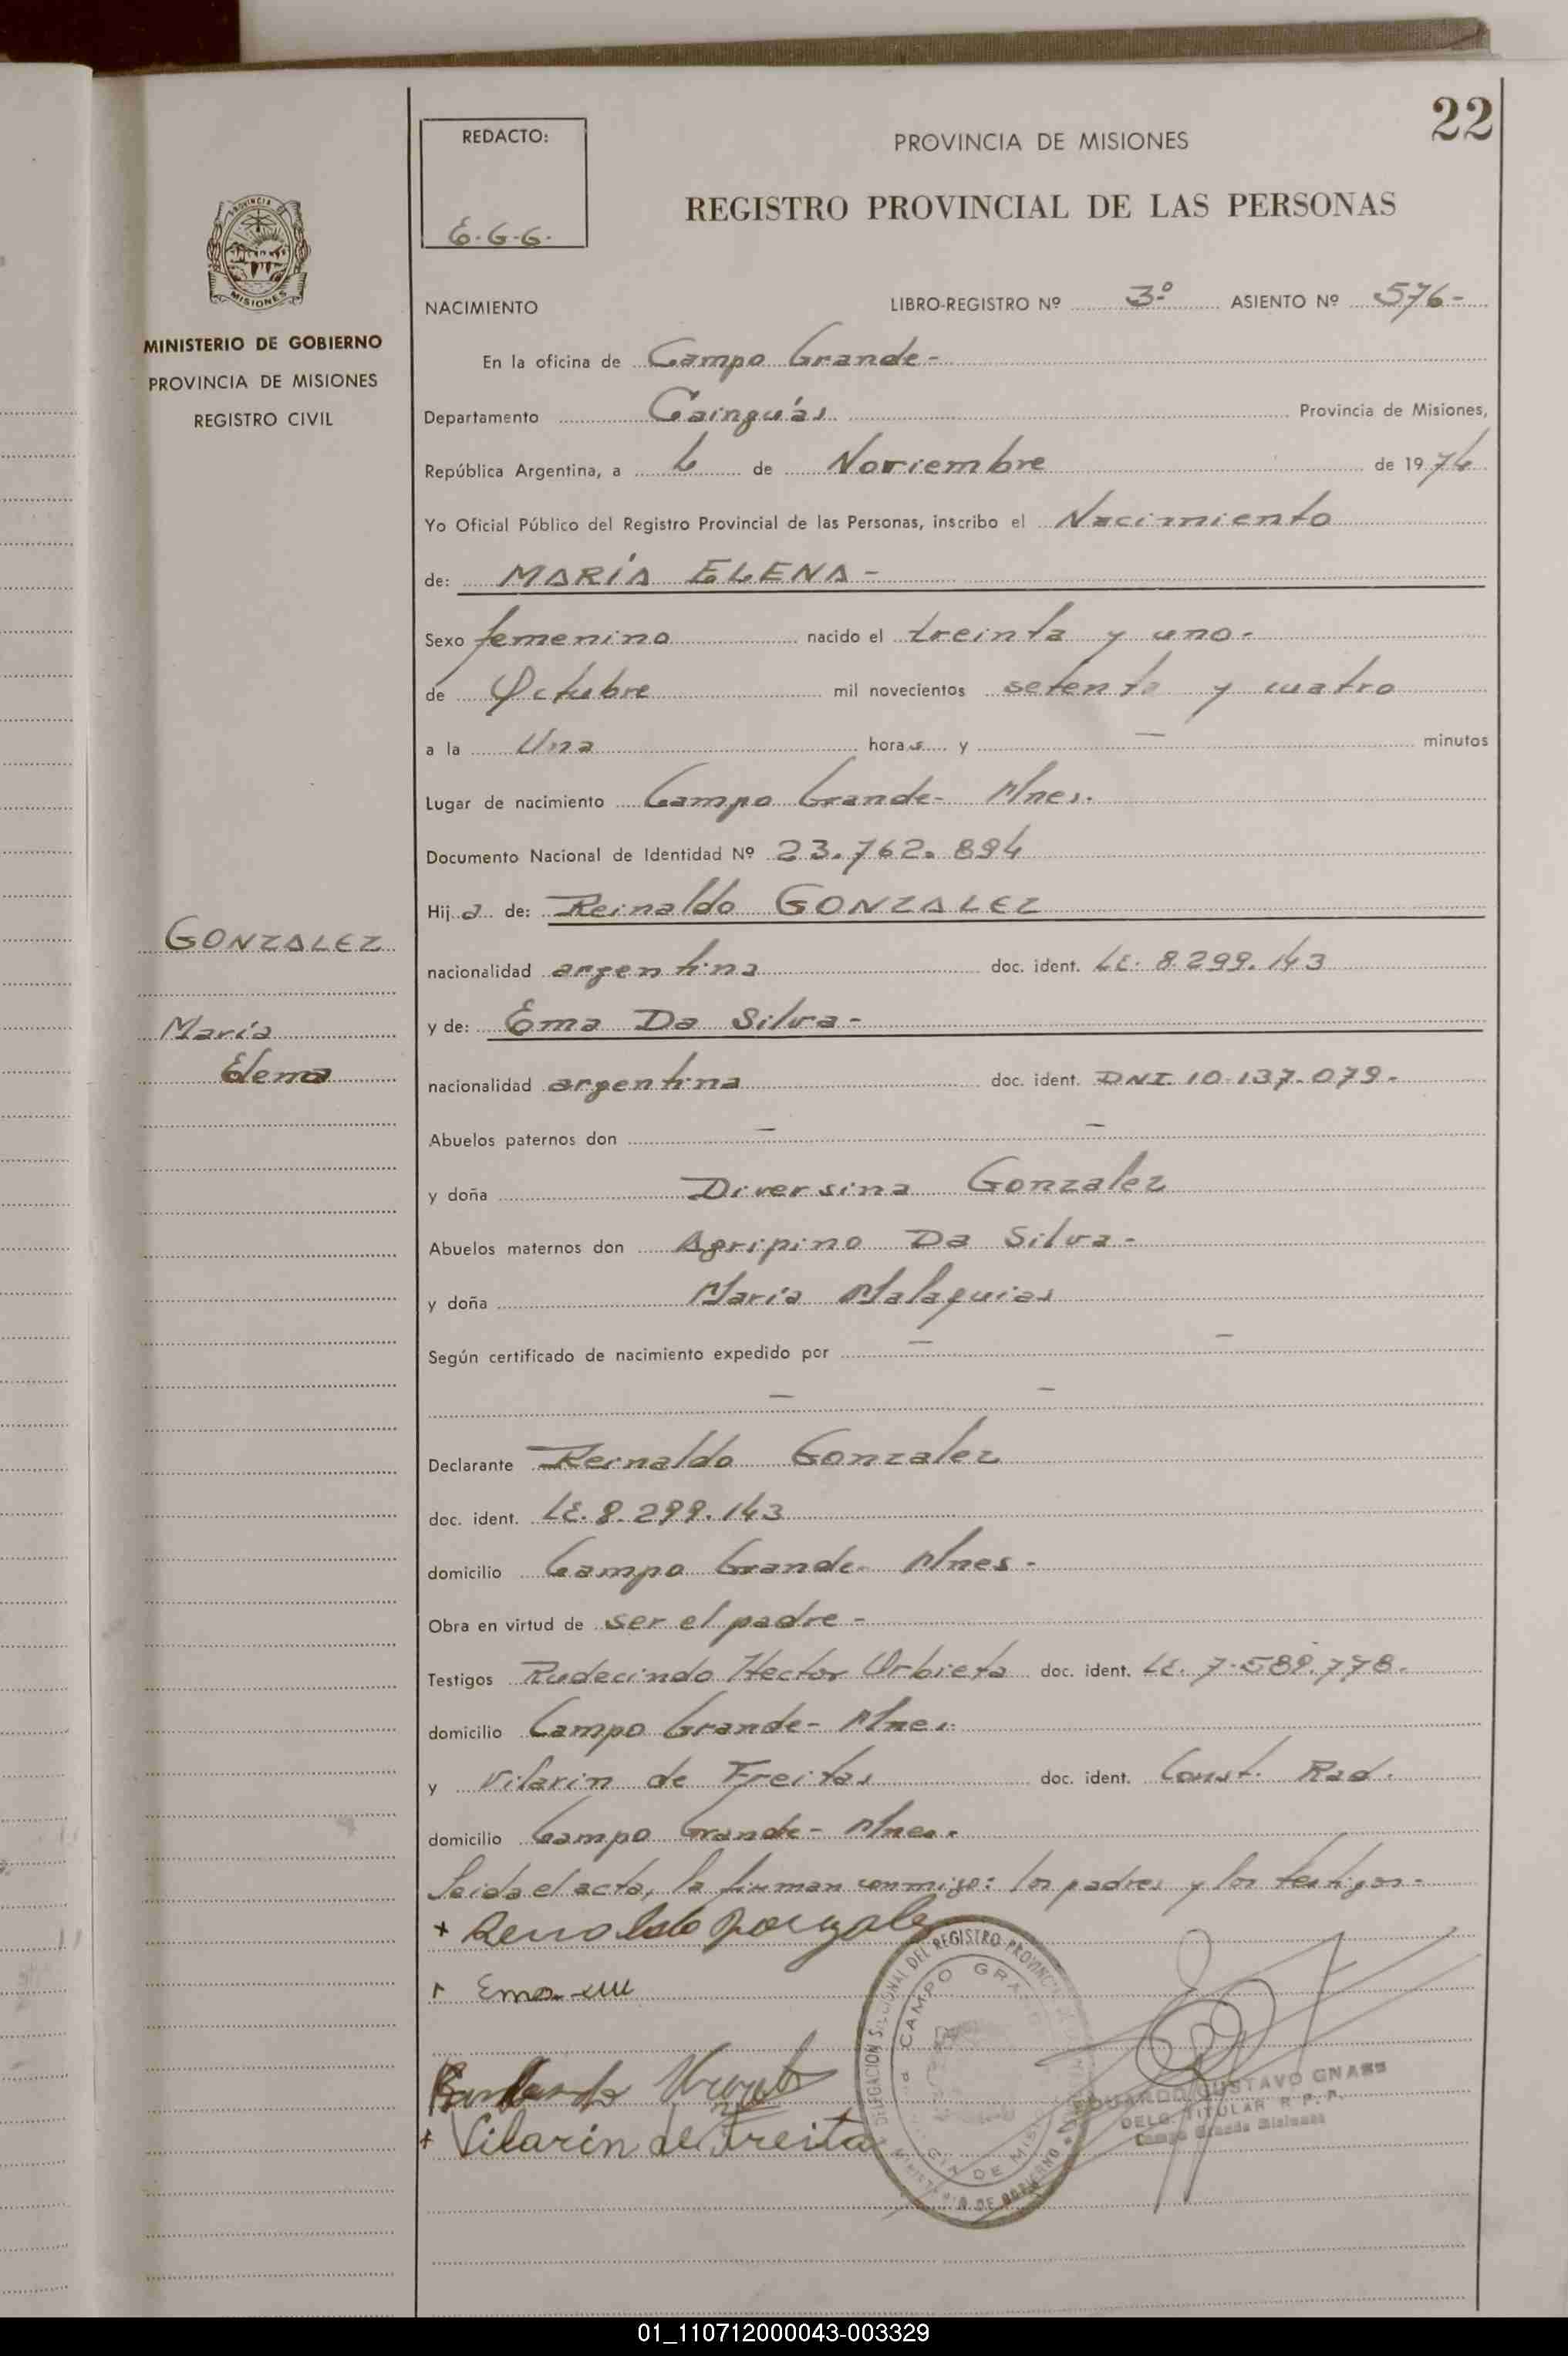 22
REDACTO:
E.G.G.
PROVINCIA DE MISIONES
REGISTRO PROVINCIAL DE LAS PERSONAS
PROVINCIA DE
MISIONES
MINISTERIO DE GOBIERNO
PROVINCIA DE MISIONES
REGISTRO CIVIL
NACIMIENTO LIBRO-REGISTRO Nº 3º ASIENTO Nº 576-
En la oficina de Campo Grande-
Departamento Cainguás Provincia de Misiones,
República Argentina, a 6 de Noviembre de 1974
Yo Oficial Público del Registro Provincial de las Personas, inscribo el Nacimiento
de: MARÍA ELENA-
Sexo femenino nacido el treinta y uno-
de Octubre mil novecientos setenta y cuatro
a la Una horas y — minutos
Lugar de nacimiento Campo Grande- Mnes.
Documento Nacional de Identidad Nº 23.762.894
Hija de: Reinaldo GONZALEZ
GONZALEZ
nacionalidad argentina doc. ident. LE. 8.299.143
María
Elena
y de: Ema Da Silva-
nacionalidad argentina doc. ident. DNI. 10.137.079.
Abuelos paternos don — —
y doña Diversina Gonzalez
Abuelos maternos don Agripino Da Silva-
y doña María Malaquias
Según certificado de nacimiento expedido por — —
— —
Declarante Reinaldo Gonzalez
doc. ident. LE. 8.299.143
domicilio Campo Grande- Mnes-
Obra en virtud de ser el padre-
Testigos Rudecindo Hector Urbieta doc. ident. LE. 7.589.778.
domicilio Campo Grande- Mnes.
y Vilarin de Freitas doc. ident. Const. Rad.
domicilio Campo Grande- Mnes.
Leida el acta, la firman conmigo: los padres y los testigos-
+ Reinaldo Gonzalez
Ema
+ Vilarin de Freita
DELEGACION SECCIONAL DEL REGISTRO PROVINCIAL
CAMPO GRANDE
MINISTERIO DE GOBIERNO
EDUARDO GUSTAVO GNASS
DELG. TITULAR R. P. P.
Campo Grande Misiones
01_110712000043-003329